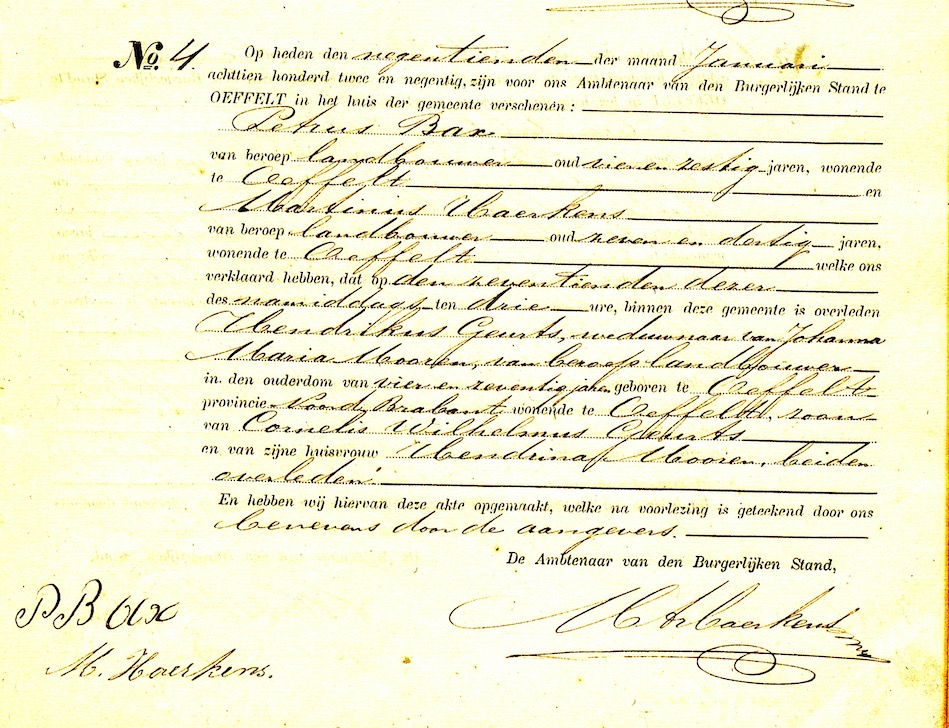 No. 4 Op heden den negentienden der maand Januari
achttien honderd twee en negentig, zijn voor ons Ambtenaar van den Burgerlijken Stand te
OEFFELT in het huis der gemeente verschenen:
Petrus Bax
van beroep landbouwer oud vier en zestig jaren, wonende
te Oeffelt en
Martinus Haerkens
van beroep landbouwer oud zeven en dertig jaren,
wonende te Oeffelt welke ons
verklaard hebben, dat op den zeventienden dezer
des namiddags ten drie ure, binnen deze gemeente is overleden
Hendrikus Geurts, weduwnaar van Johanna
Maria Mooren, van beroep landbouwer
in den ouderdom van vier en zeventig jaren geboren te Oeffelt
provincie Noord Brabant, wonende te Oeffelt, zoon
van Cornelis Wilhelmus Geurts
en van zijne huisvrouw Hendrina Mooren, beiden
overleden
En hebben wij hiervan deze akte opgemaakt, welke na voorlezing is geteekend door ons
benevens door de aangevers.
De Ambtenaar van den Burgerlijken Stand,
P Bax
M. Haerkens.